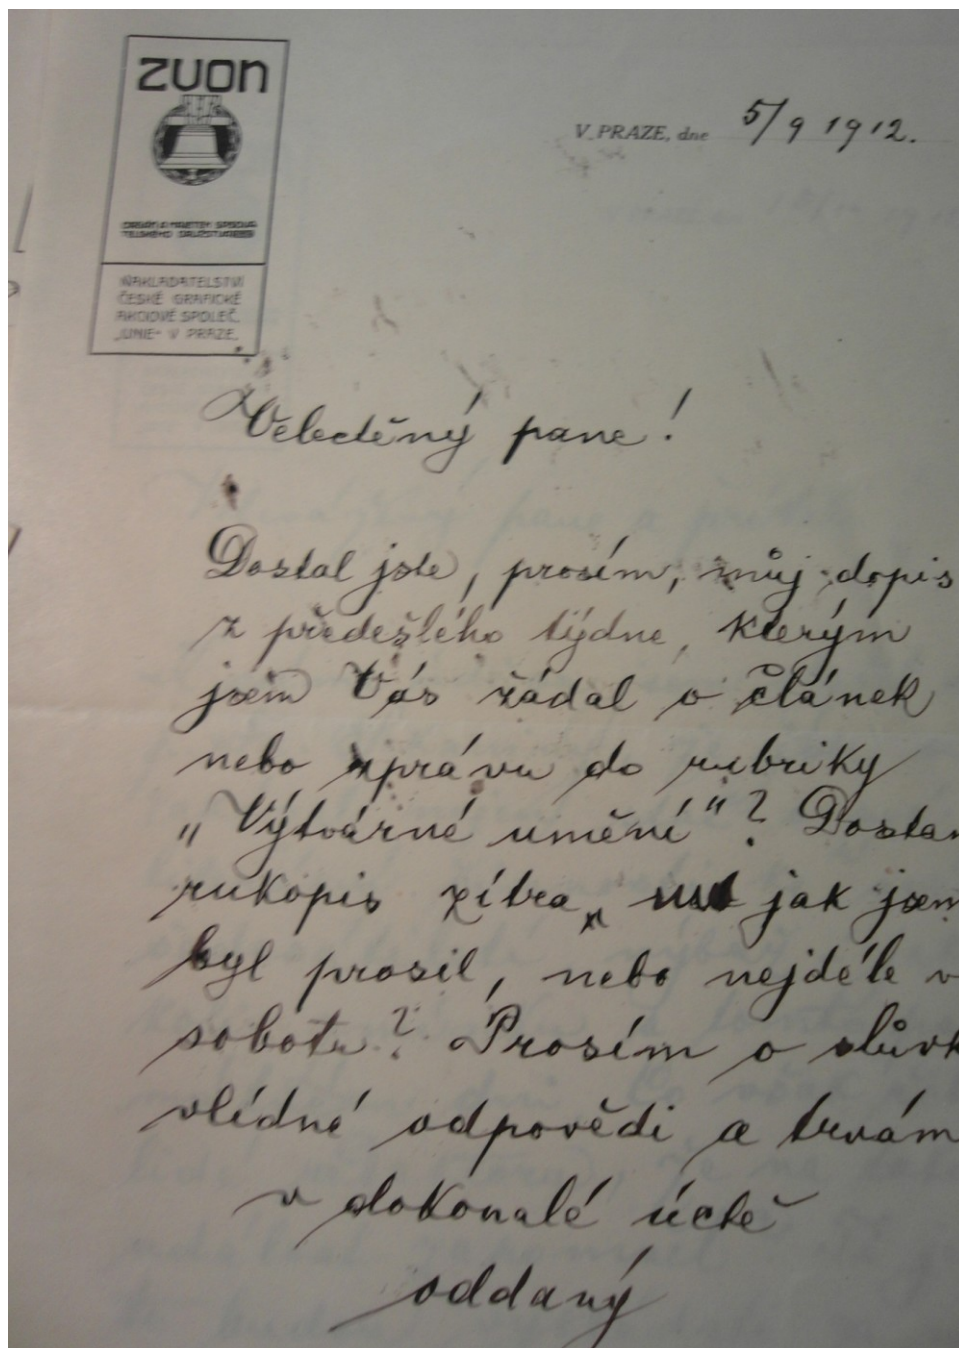 ZVON
TÝDENÍK
NAKLADATELSTVÍ
ČESKÉ GRAFICKÉ
AKCIOVÉ SPOLEČ.
„UNIE“ V PRAZE.
V PRAZE, dne 5/9 1912.
Velectěný pane!
Dostal jste, prosím, můj dopis
z předešlého týdne, kterým
jsem Vás žádal o článek
nebo zprávu do rubriky
„Výtvarné umění“? Dostan
rukopis zítra, jak jsem
byl prosil, nebo nejdéle v
sobotu? Prosím o slůvk
vlídné odpovědi a trvám
v dokonalé úctě
oddaný